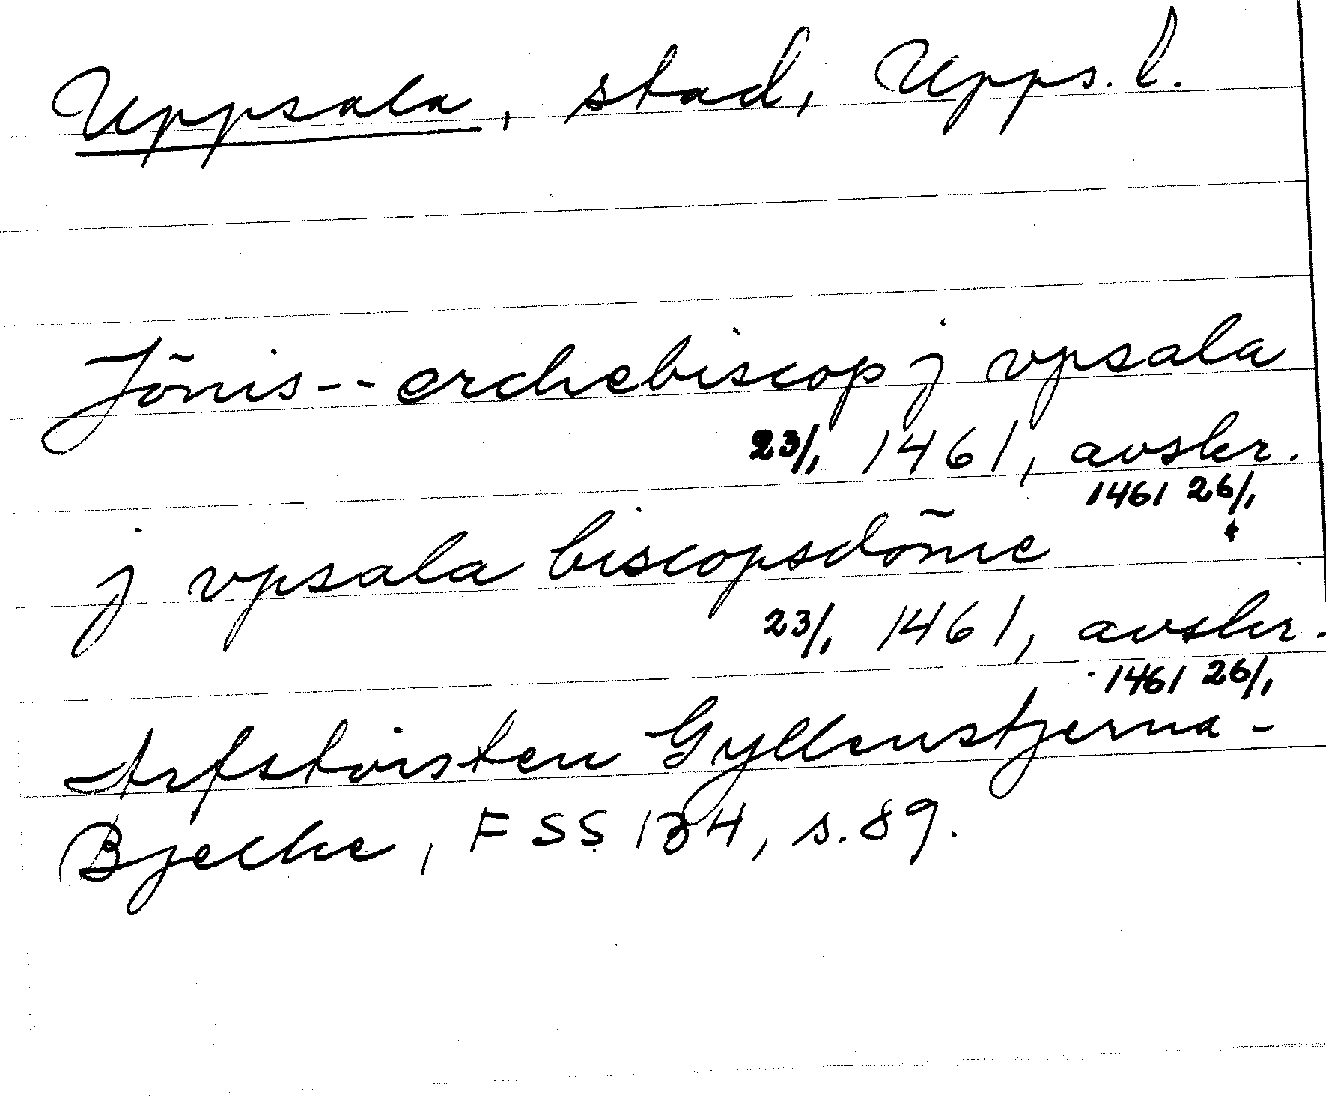 Uppsala, stad, Upps. l.
Jönis -- erchebiscop j vpsala
23/1 1461, avskr.
1461 26/1
j vpsala biscopsdōme
23/1 1461, avskr.
1461 26/1
Arfstvisten Gyllenstjerna-
Bjelke, FSS 134, s. 89.